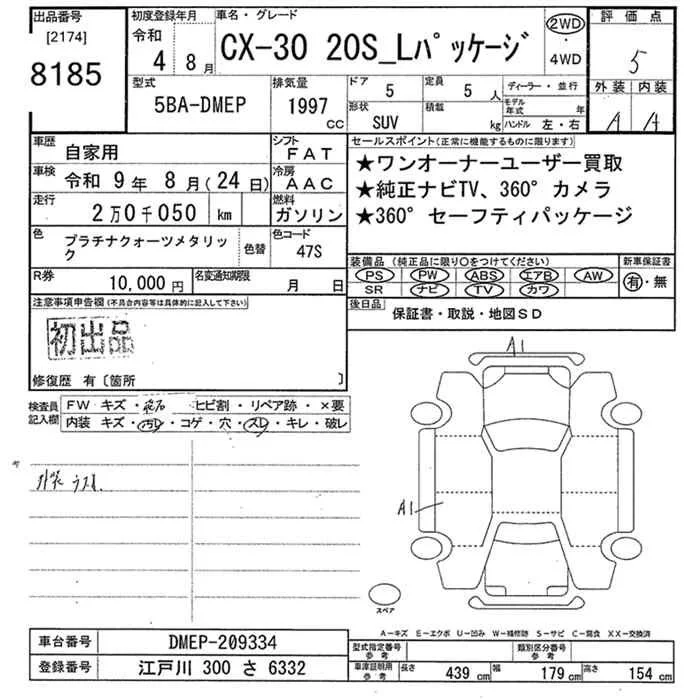 出品番号
[2174]
8185
初度登録年月
令和
4年8月
車名・グレード
CX-30 20S_Lパッケージ
2WD
・
4WD
評価点
5
外装 内装
A A
型式
5BA-DMEP
排気量
1997
CC
ドア
5
定員
5人
形状
SUV
積載
kg
ディーラー・並行
モデル年式 年
ハンドル 左・右
車歴
自家用
シフト
FAT
車検
令和 9年 8月(24日)
冷房
AAC
走行
2万0千050 km
燃料
ガソリン
色
プラチナクォーツメタリック
色替
色コード
47S
R券
10,000円
名変通知期限
月 日
セールスポイント(正常に機能するものに限ります)
★ワンオーナーユーザー買取
★純正ナビTV、360°カメラ
★360°セーフティパッケージ
装備品(純正品に限り〇をつけてください)
PS PW ABS エアB AW
SR ナビ TV カワ
新車保証書
有・無
後日品
保証書・取説・地図SD
注意事項申告欄(不具合内容等は具体的に記入して下さい)
初出品
修復歴 有〔箇所 〕
検査員記入欄
FW キズ・ ヒビ割・リペア跡・×要
内装 キズ・汚レ・コゲ・穴・スレ・キレ・破レ
A1
A1
スペア
A―キズ E―エクボ U―凹み W―補修跡 S―サビ C―腐食 XX―交換済
車台番号
DMEP-209334
登録番号
江戸川 300 さ 6332
型式指定番号
参考
類別区分番号
参考
車庫証明用
参考
長さ 439cm 幅 179cm 高さ 154cm